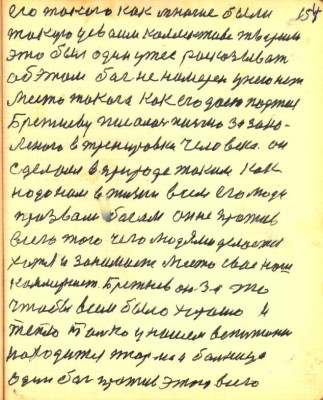 его такого как многие были 154
такую девам коллективе творим
это был один ужес рассказыват
об этом бог не намерен у него нет
место такога как его дает партия
Брежневу писалос лично за зако-
леного в тренировки человека он
сделали в природе таким как
надо нам в жизни всем его люди
призвали богам он не против
всего того чего людями делается
хотя и занимает место свое наш
коммунист Брежнев он за то
чтобы всем было хорошо и
тепло только у нашем
находится тюрма и больница
один бог против этого всего